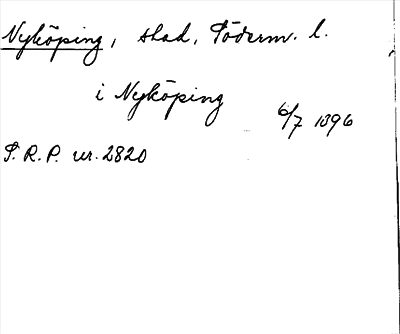 Nyköping, stad, Söderm. l.
i Nyköping
6/7 1396
S.R.P. nr. 2820